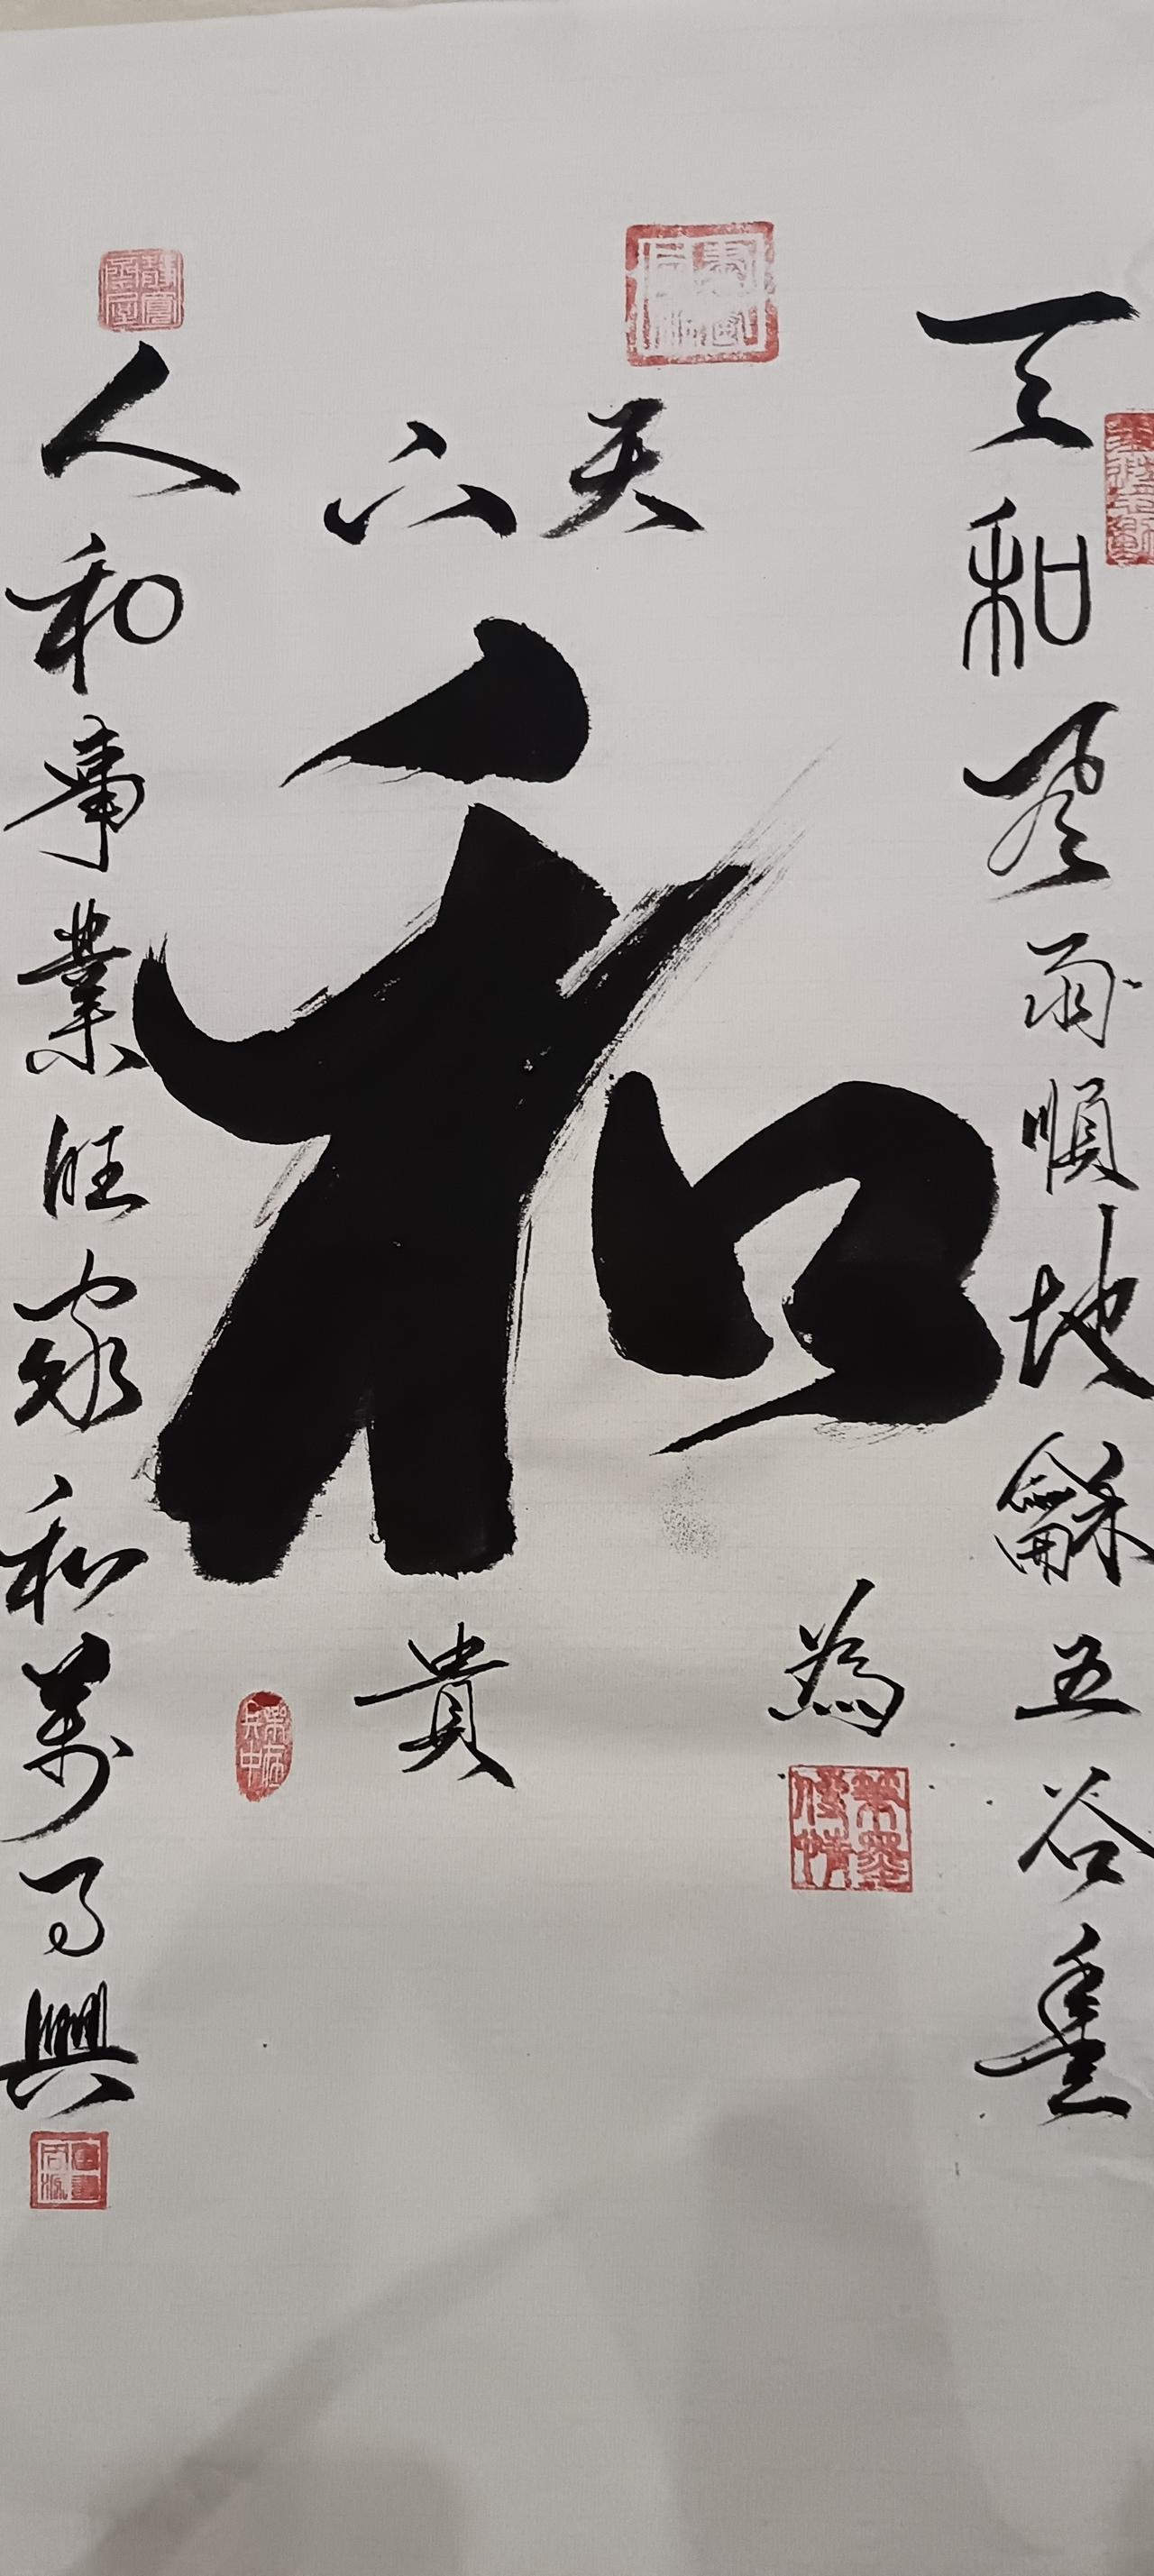 天和風雨順地龢五谷豐
天下
和
為貴
人和事業旺家和萬事興